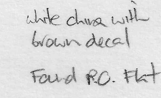 white china with
brown decal
Found P.O. Flat